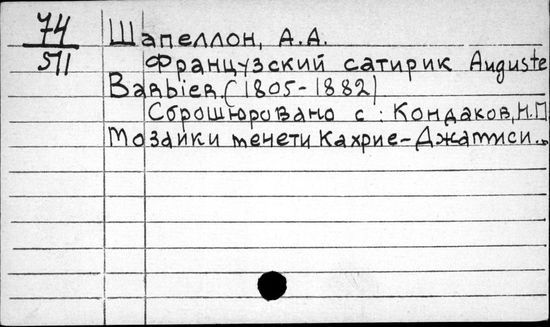 74
511
Шапеллон, А.А.
Французский сатирик Auguste
Barbier. (1805-1882)
Сброшюровано с: Кондаков, Н.П.
Мозаики мечети Кахрие-Джамиси...